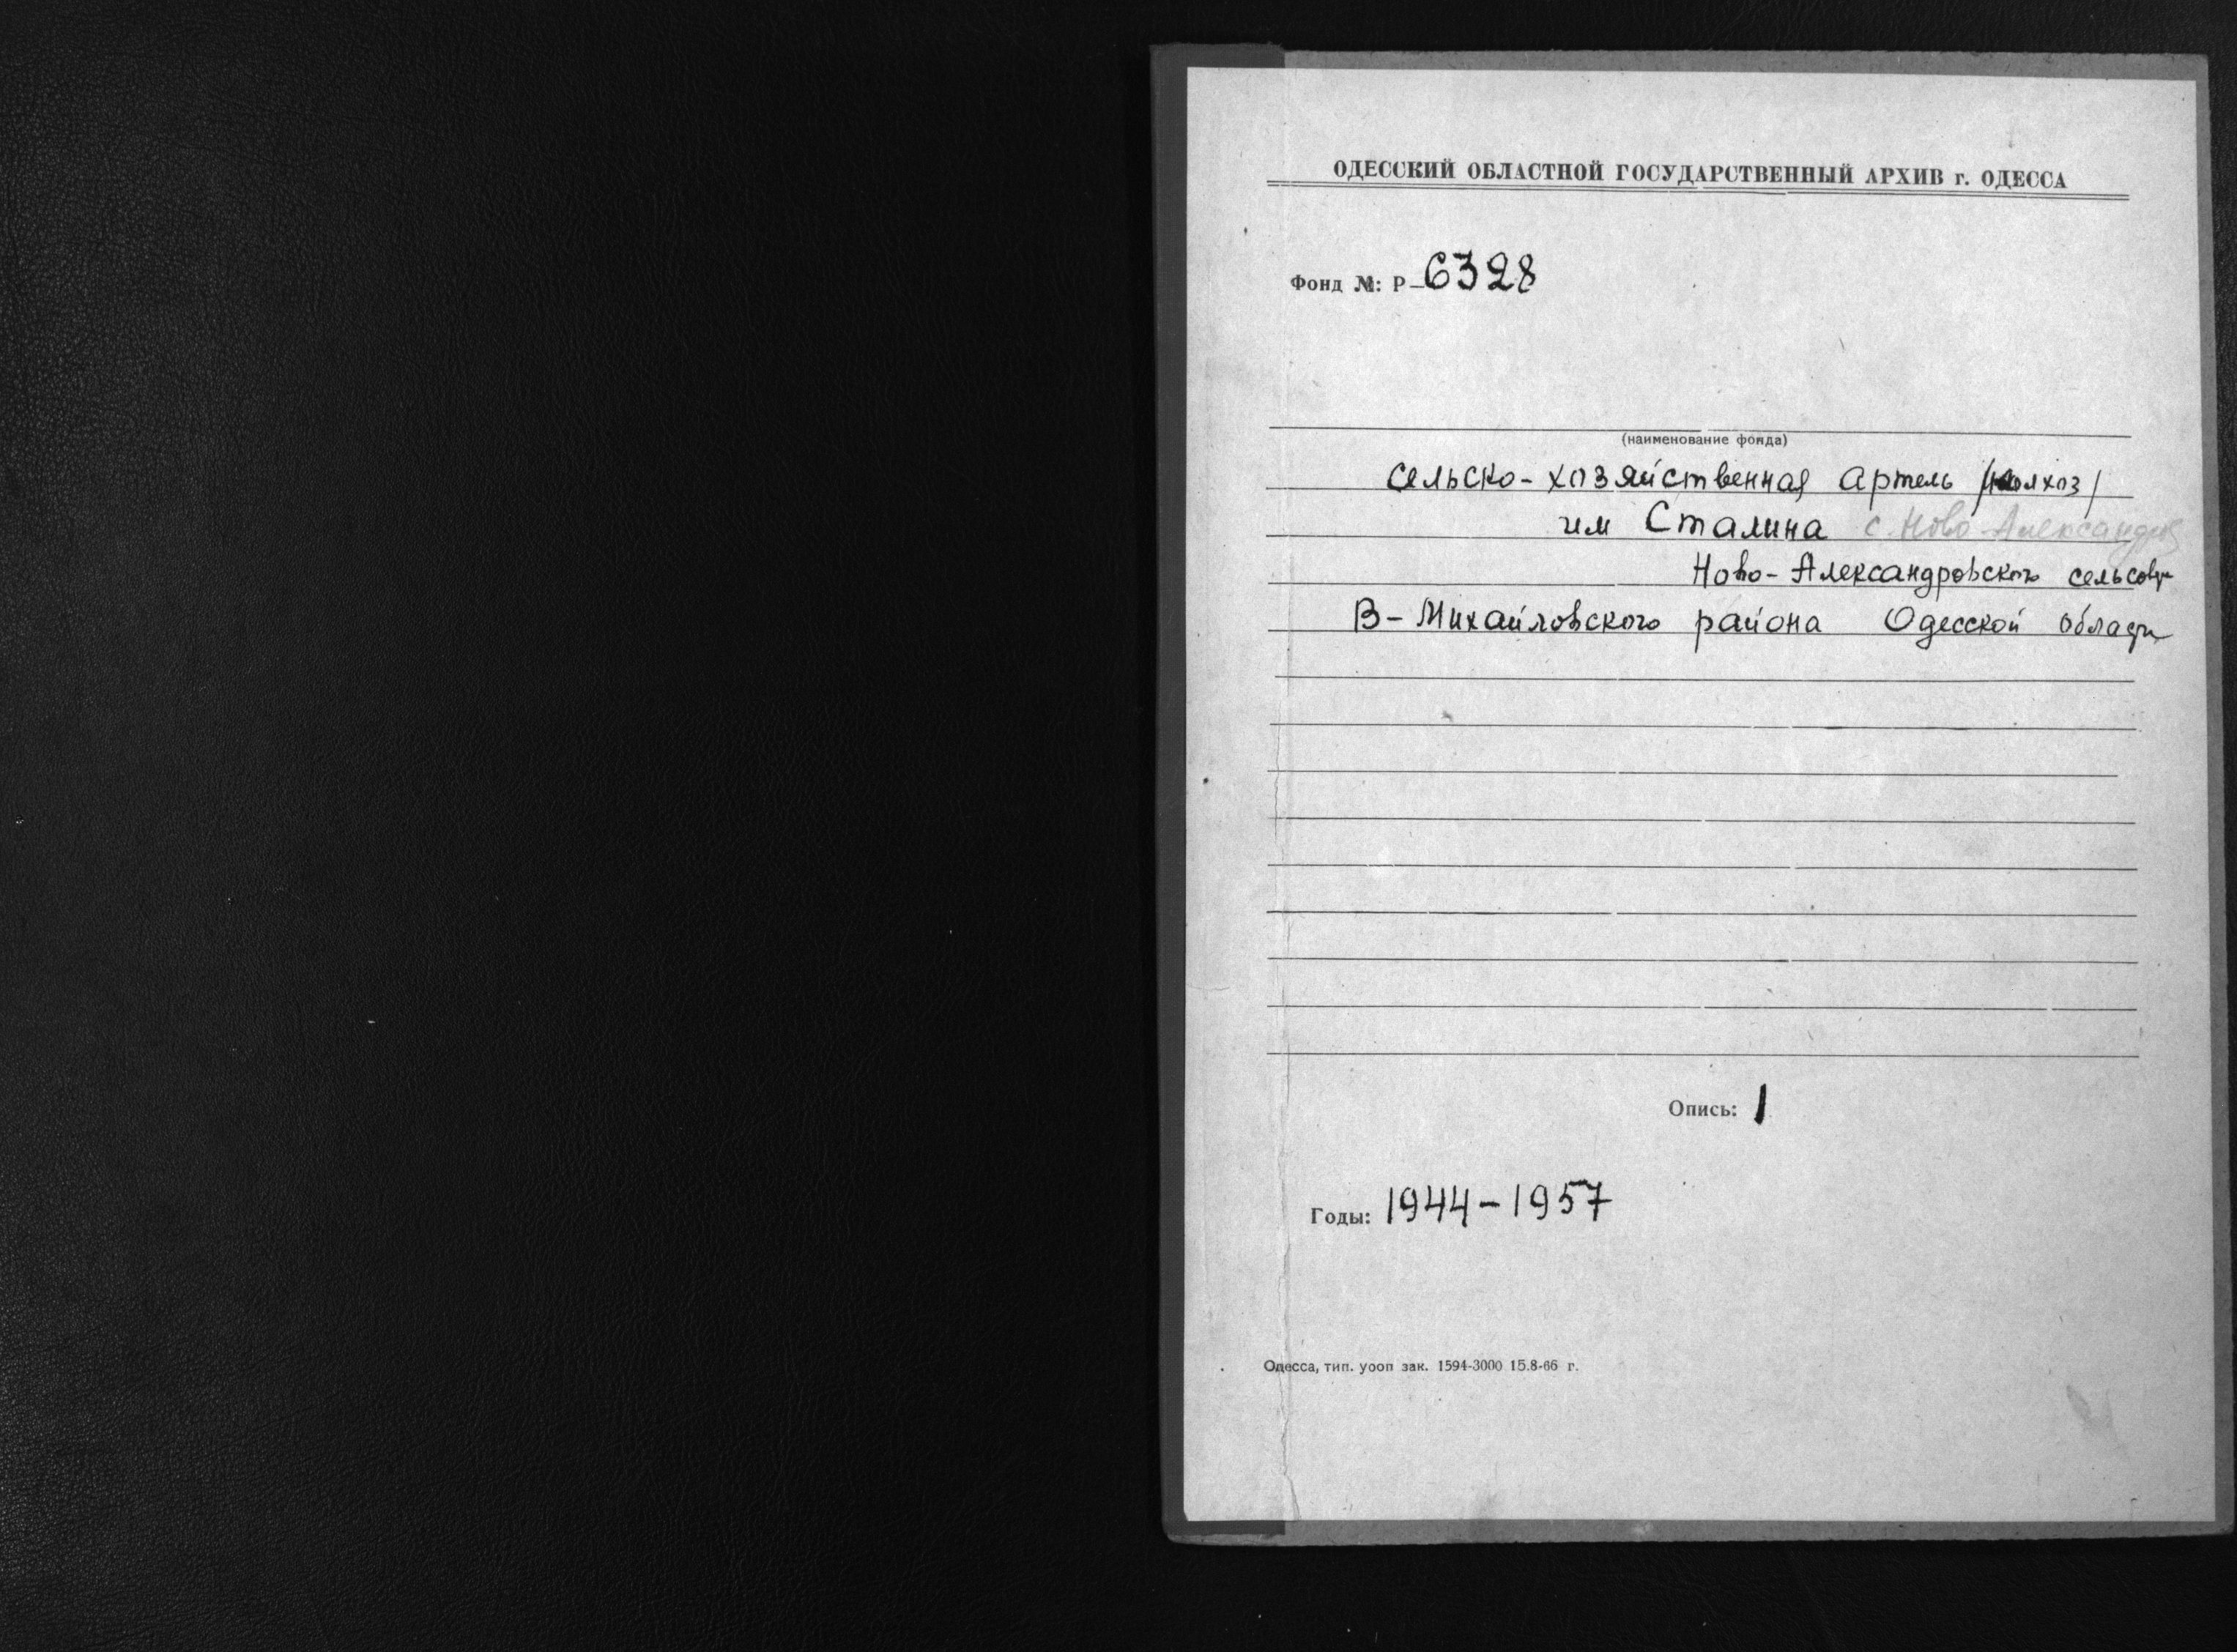 ОДЕССКИЙ ОБЛАСТНОЙ ГОСУДАРСТВЕННЫЙ АРХИВ г. ОДЕССА
Фонд №: Р-6328
(наименование фонда)
сельско-хозяйственная артель /колхоз/
им Сталина с. Ново-Александров
Ново-Александровского сельсовета
В-Михайловского района Одесской области
Опись: 1
Годы: 1944-1957
Одесса, тип. уооп зак. 1594-3000 15.8-66 г.